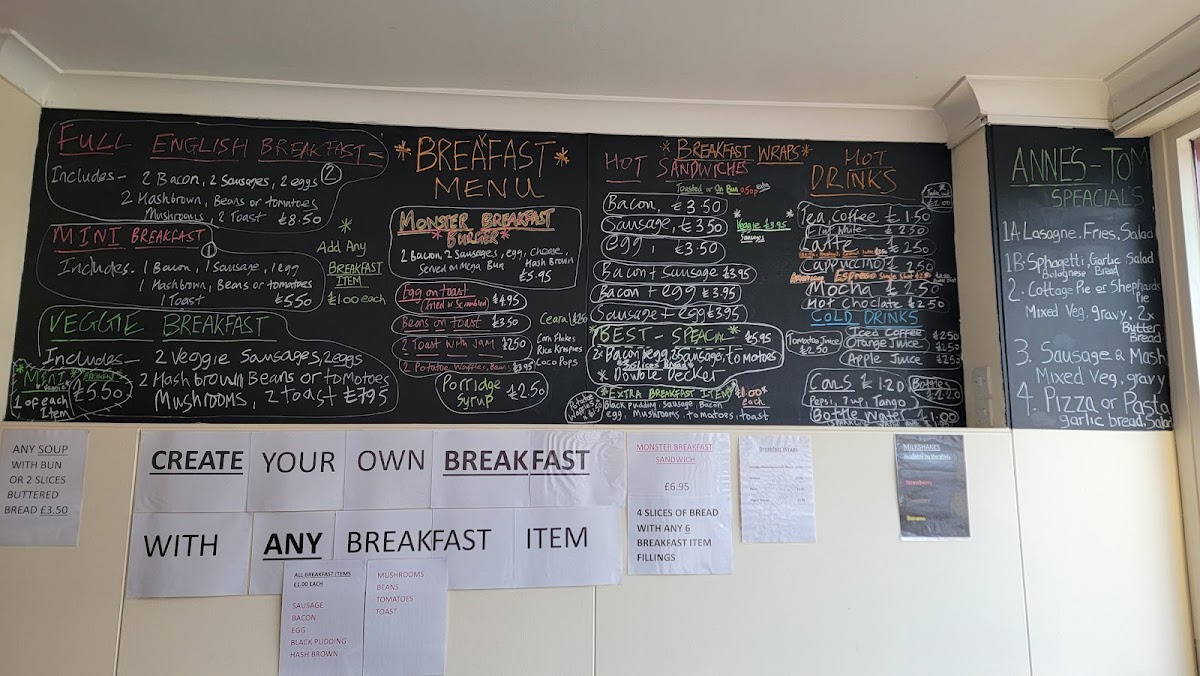 FULL ENGLISH BREAKFAST =
Includes - 2 Bacon, 2 Sausages, 2 eggs (2)
2 Hashbrown, Beans or tomatoes
Mushrooms, 2 Toast £8.50
MINI BREAKFAST
Includes. 1 Bacon, 1 Sausage, 1 egg
1 Hashbrown, Beans or tomatoes
1 Toast £5.50
Add Any
BREAKFAST
ITEM
£1.00 each
VEGGIE BREAKFAST
Includes - 2 Veggie Sausages, 2 eggs
2 Hashbrown Beans or tomatoes
Mushrooms, 2 toast £7.95
*Mini
1 of each
Item
£5.50
*BREAFAST*
MENU
MONSTER BREAKFAST
*BURGER*
2 Bacon, 2 Sausages, egg, cheese,
Served on Mega Bun Hash Brown
£5.95
Egg on toast
Fried or Scrambled £4.95
Beans on toast £3.50
2 Toast with Jam £2.50
2 Potatoe Waffles, Beans £3.95
Porridge
Syrup £2.50
Ceara £2.50
Corn Flakes
Rice Krispies
Coco Pops
*BREAKFAST WRAPS*
HOT SANDWICHES
Toasted or On Bun 50p extra
Bacon, £3.50
Sausage, £3.50
egg, £3.50
*Veggie £3.95*
Sausages
Bacon + Sausage £3.95
Bacon + egg £3.95
Sausage + egg £3.95
*BEST - SPEACIAL* £5.95
2x Bacon, egg, 2 Sausage, tomotoes
3 slices bread
*Double Decker
*EXTRA BREAKFAST ITEM £1.00* each
Black pudding, Sausage, Bacon
egg, Mushrooms, tomatoes, toast
HOT
DRINKS
Tea, coffee £1.50
Flat White £2.50
Latte £2.50
Cappuccino £2.50
Espresso
Mocha £2.50
Hot Choclate £2.50
COLD DRINKS
Tomatoe Juice
£2.50
Iced Coffee £2.50
Orange Juice £2.50
Apple Juice £2.50
Cans £1.20
Pepsi, 7up, Tango
Bottles
Bottle Water £1.00
ANNE'S - TOM
SPEACIAL'S
1A Lasagne. Fries, Salad
1B. Sphagetti, Garlic Salad
Bolognese Bread
2. Cottage Pie or Shephards
Pie
Mixed Veg, gravy, 2x
Butter
Bread
3. Sausage & Mash
Mixed Veg, gravy
4. Pizza or Pasta
garlic bread, Salad
ANY SOUP
WITH BUN
OR 2 SLICES
BUTTERED
BREAD £3.50
CREATE YOUR OWN BREAKFAST
WITH ANY BREAKFAST ITEM
ALL BREAKFAST ITEMS
£1.00 EACH
SAUSAGE
BACON
EGG
BLACK PUDDING
HASH BROWN
MUSHROOMS
BEANS
TOMATOES
TOAST
MONSTER BREAKFAST
SANDWICH
£6.95
4 SLICES OF BREAD
WITH ANY 6
BREAKFAST ITEM
FILLINGS
Breakfast Wraps
MILKSHAKES
Strawberry
Banana